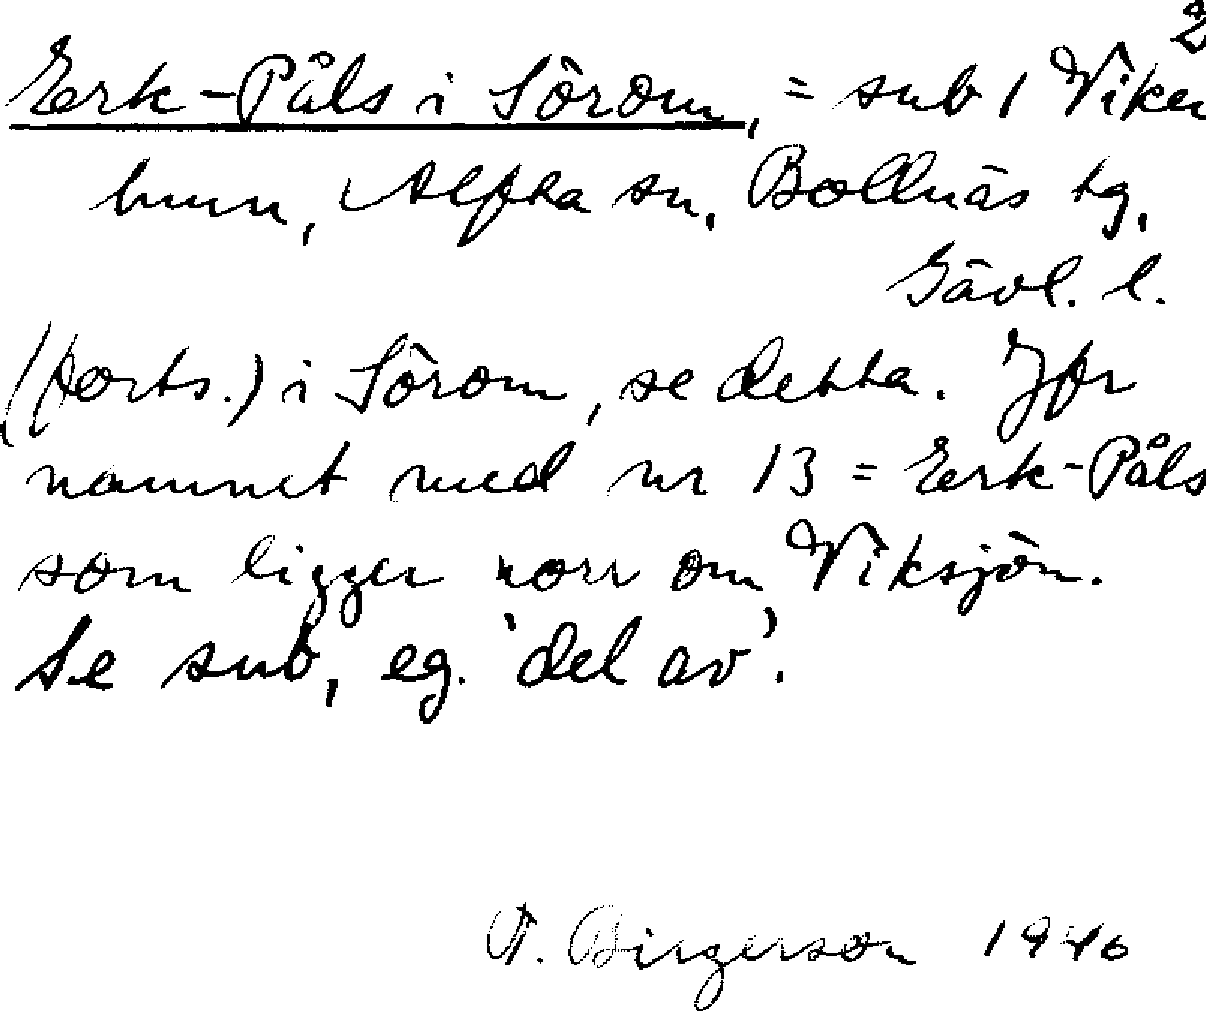 2
Eerk-Påls i Sörom, = sub 1 Viken
hmn, Alfta sn, Bollnäs tg,
Gävl. l.
(forts.) i Sörom, se detta. Jfr
namnet med nr 13 = Eerk-Påls
som ligger norr om Viksjön.
Se sub, eg. 'del av'.
Birgerson 1946